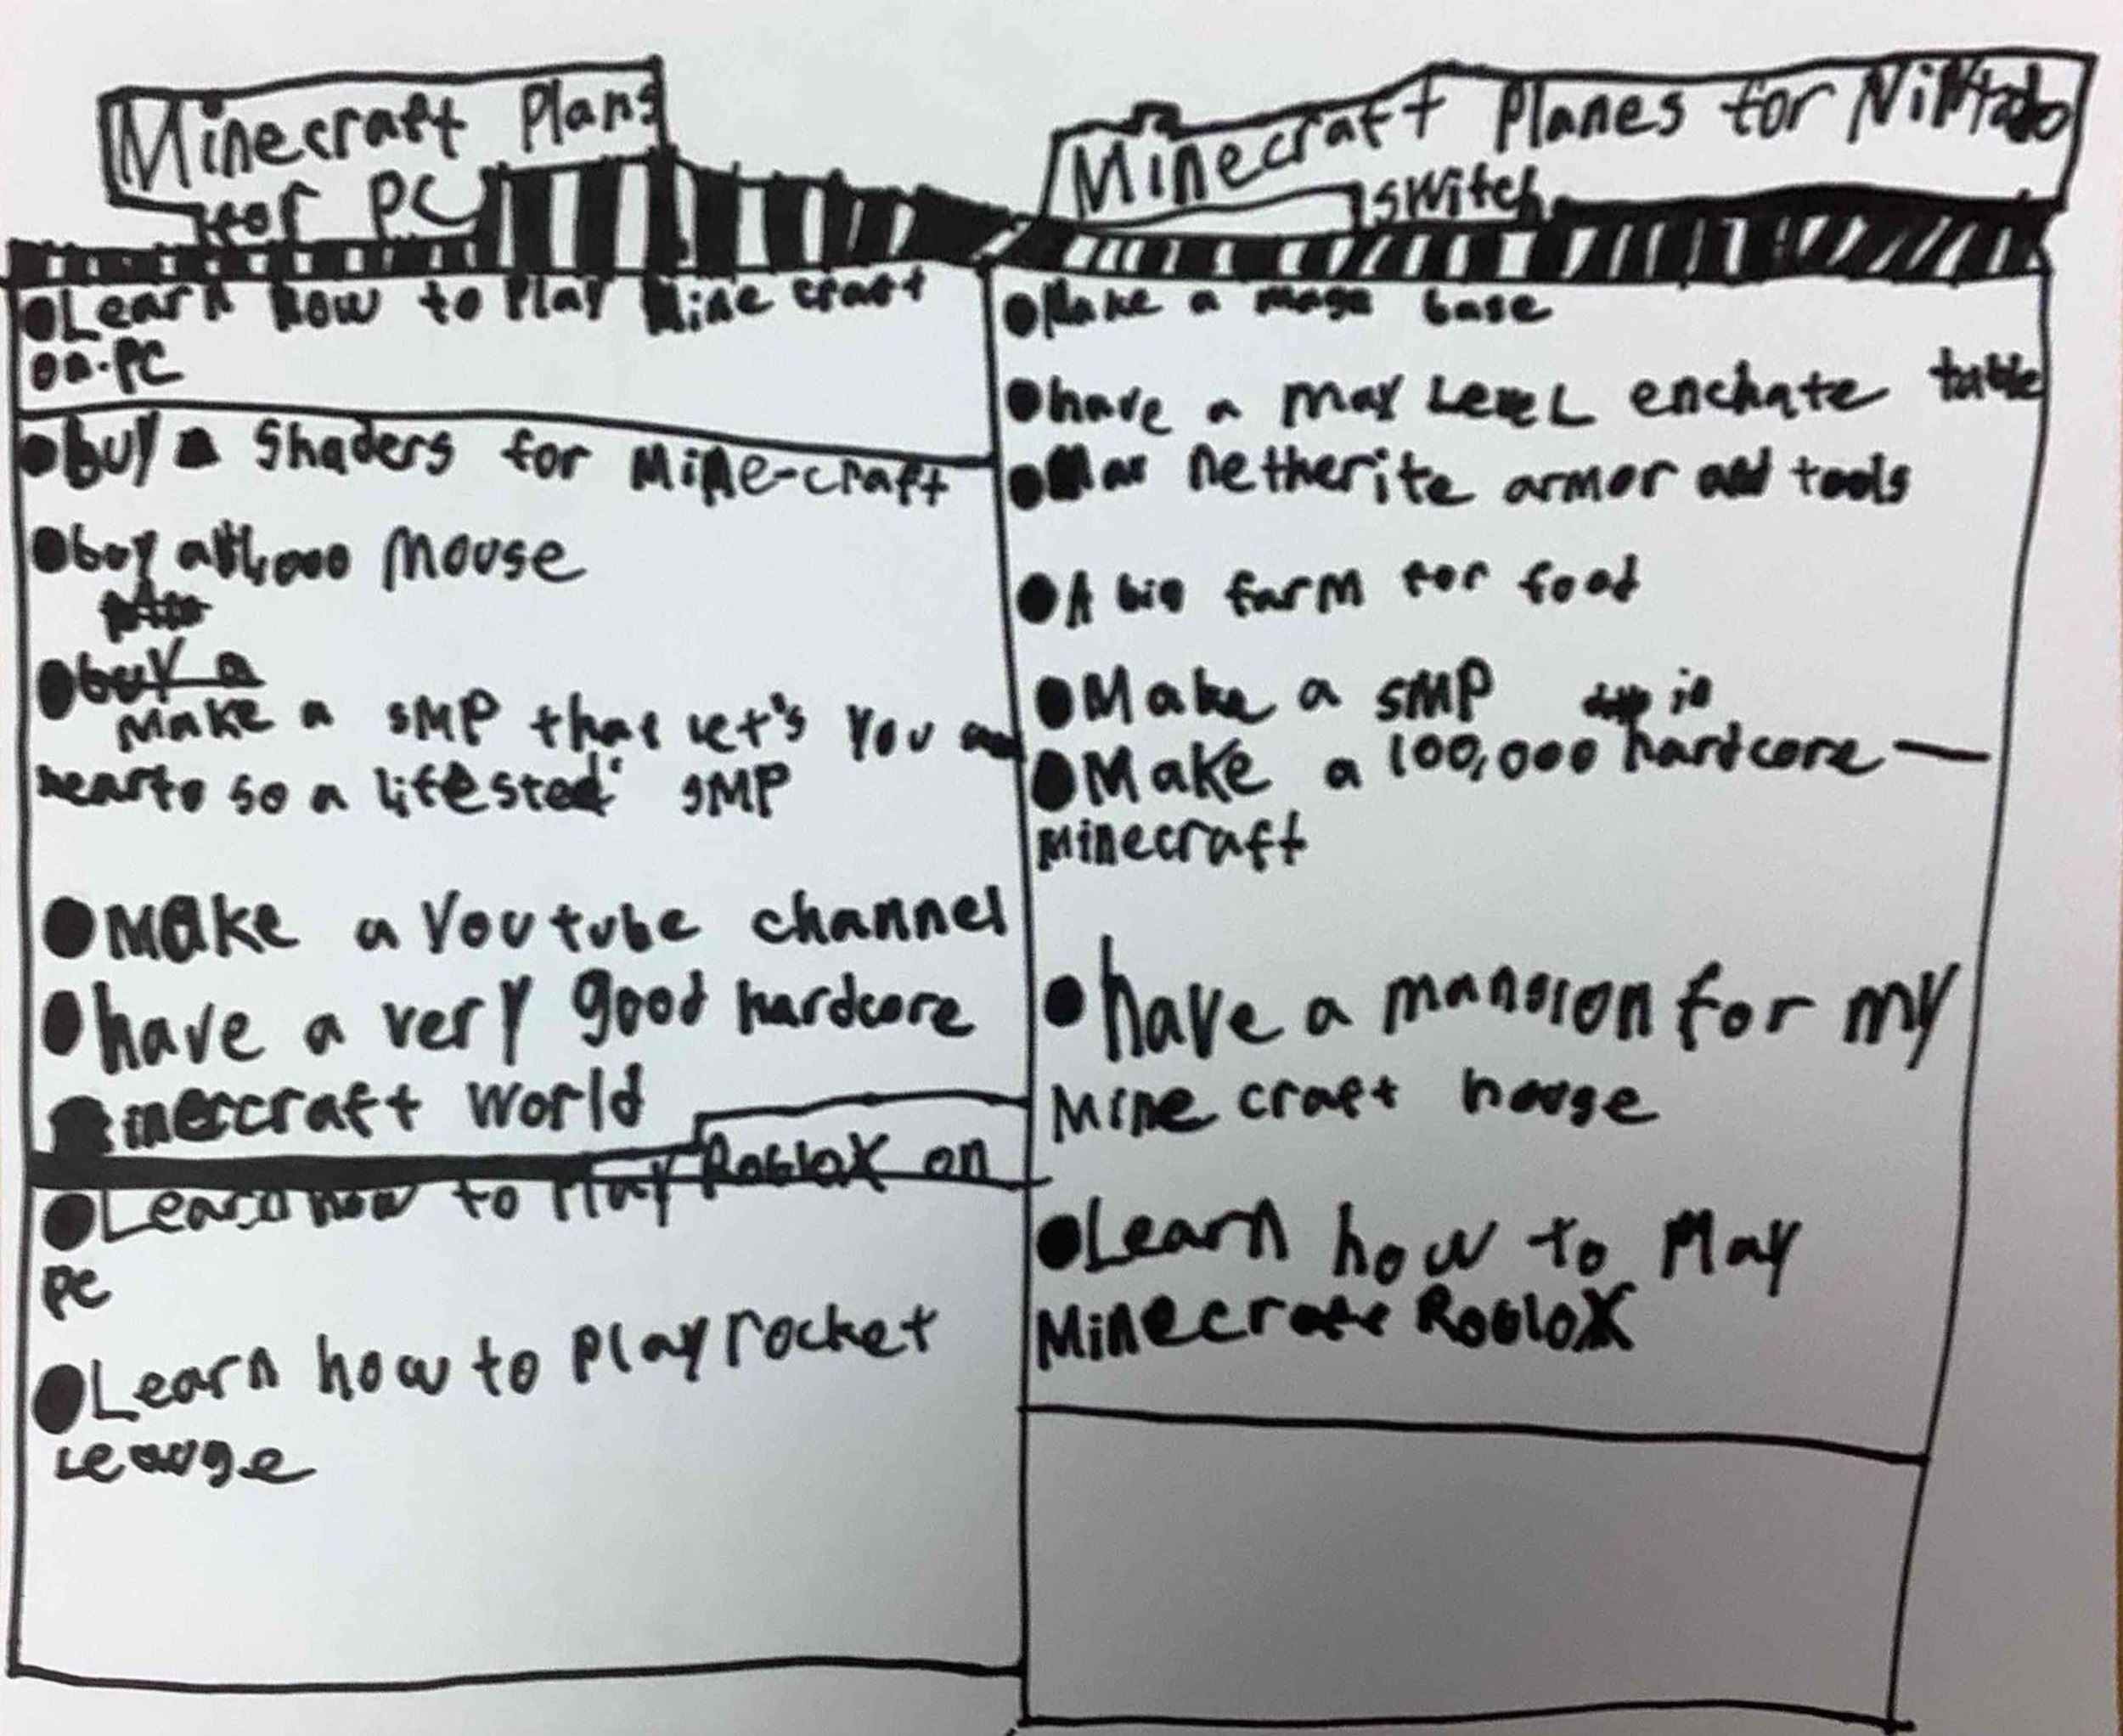 Minecraft Plans
for PC
Learn how to Play Minecraft
on PC
buy a Shaders for Mine-craft
buy a mouse
buy a
Make a SMP that let's you
hearts so a lifesteal SMP
Make a Youtube channel
have a very good hardcore
minercraft world
Learn how to Play Roblox on
PC
Learn how to play rocket
leauge
Minecraft Planes for Nintado
switch
Make a mega base
have a max Level enchate table
Max netherite armor and tools
A big farm for food
Make a SMP
Make a 100,000 hardcore
Minecraft
have a mansion for my
Mine craft house
Learn how to Play
Minecrate Roblox